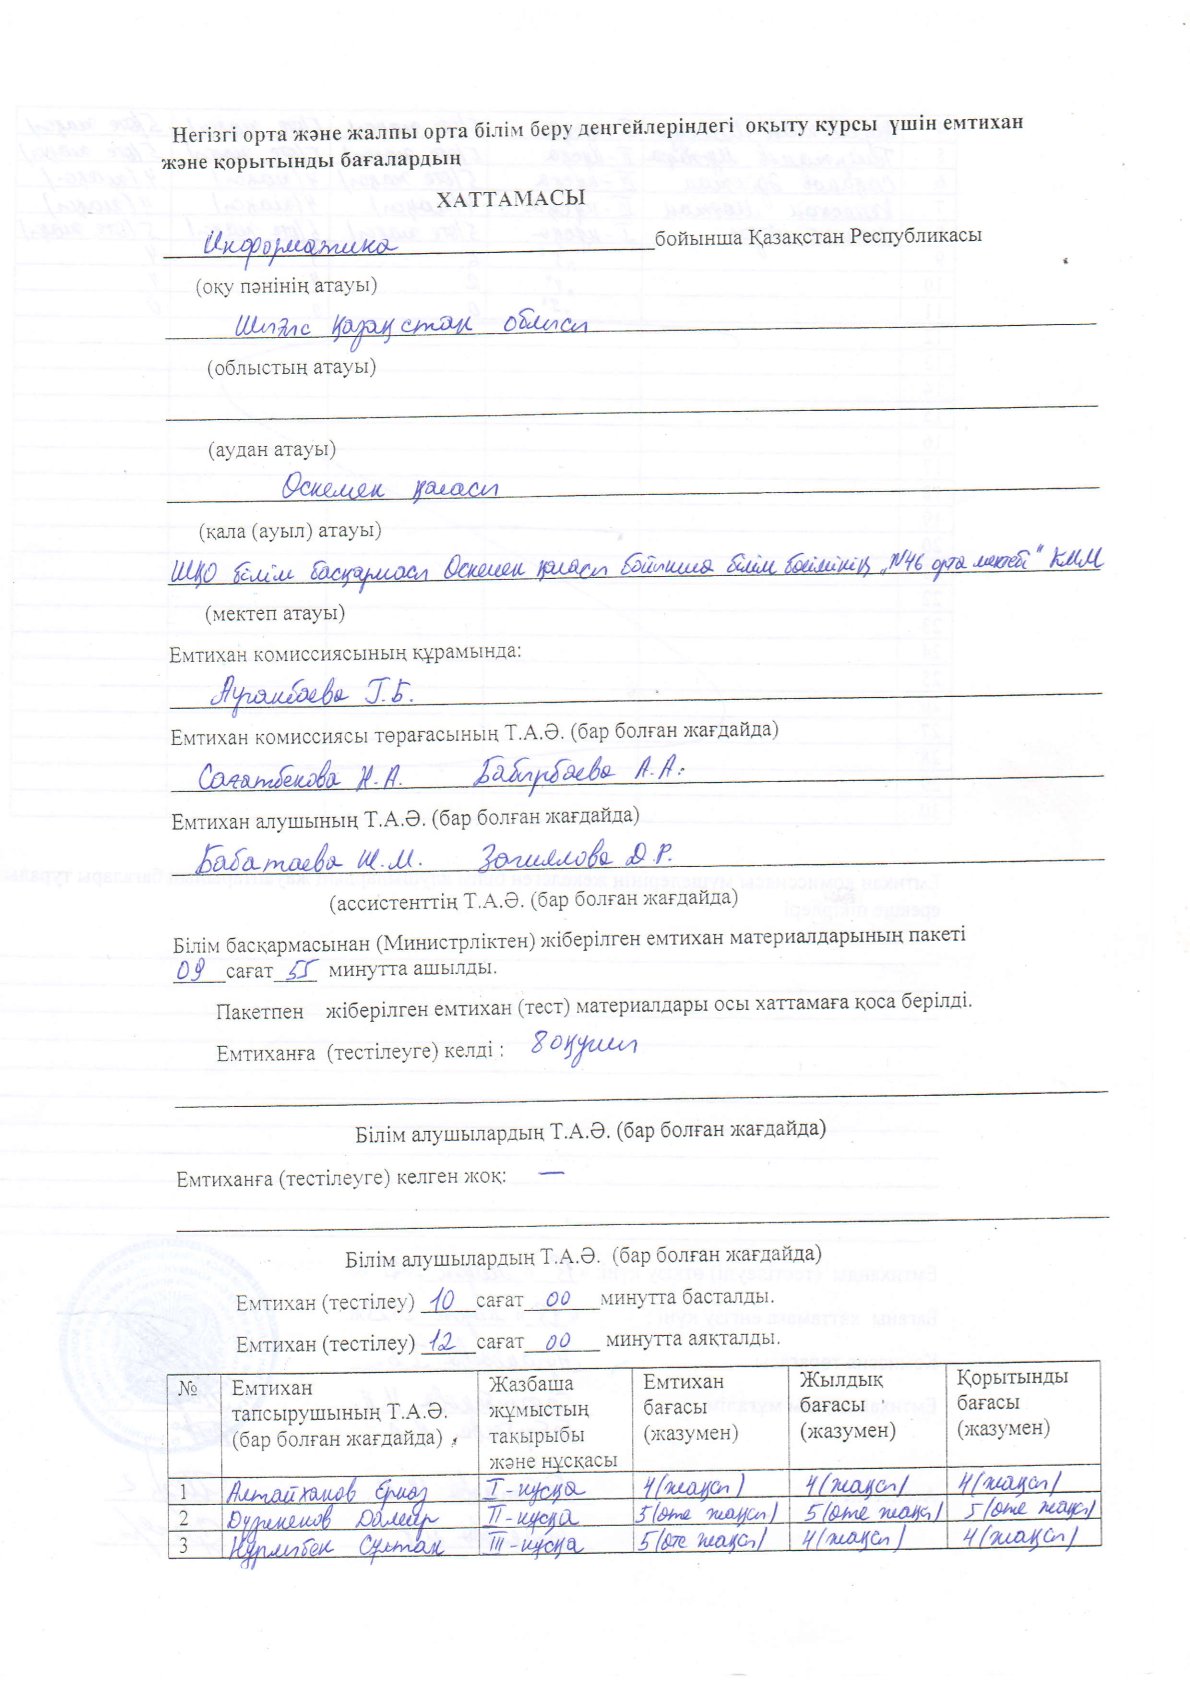 Негізгі орта және жалпы орта білім беру деңгейлеріндегі оқыту курсы үшін емтихан
және қорытынды бағалардың
ХАТТАМАСЫ
Информатика бойынша Қазақстан Республикасы
(оқу пәнінің атауы)
Шығыс Қазақстан облысы
(облыстың атауы)
(аудан атауы)
Өскемен қаласы
(қала (ауыл) атауы)
ШҚО білім басқармасы Өскемен қаласы бойынша білім бөлімінің „N46 орта мектебі" КММ
(мектеп атауы)
Емтихан комиссиясының құрамында:
Ауганбаева Г.Б.
Емтихан комиссиясы төрағасының Т.А.Ә. (бар болған жағдайда)
Сағатбекова Н.А. Бабырбаева А.А.
Емтихан алушының Т.А.Ә. (бар болған жағдайда)
Бабатаева Ш.М. Загиялова Д.Р.
(ассистенттің Т.А.Ә. (бар болған жағдайда)
Білім басқармасынан (Министрліктен) жіберілген емтихан материалдарының пакеті
09 сағат 55 минутта ашылды.
Пакетпен жіберілген емтихан (тест) материалдары осы хаттамаға қоса берілді.
Емтиханға (тестілеуге) келді : 8 оқушы
Білім алушылардың Т.А.Ә. (бар болған жағдайда)
Емтиханға (тестілеуге) келген жоқ: —
Білім алушылардың Т.А.Ә. (бар болған жағдайда)
Емтихан (тестілеу) 10 сағат 00 минутта басталды.
Емтихан (тестілеу) 12 сағат 00 минутта аяқталды.
№ Емтихан тапсырушының Т.А.Ә. (бар болған жағдайда) Жазбаша жұмыстың такырыбы және нұсқасы Емтихан бағасы (жазумен) Жылдық бағасы (жазумен) Қорытынды бағасы (жазумен)
1 Алтайханов Ерназ I - нұсқа 4 (жақсы) 4 (жақсы) 4 (жақсы)
2 Дүзмкенов Далияр II - нұсқа 5 (өте жақсы) 5 (өте жақсы) 5 (өте жақсы)
3 Нұрлыбек Сұлтан III - нұсқа 5 (өте жақсы) 4 (жақсы) 4 (жақсы)